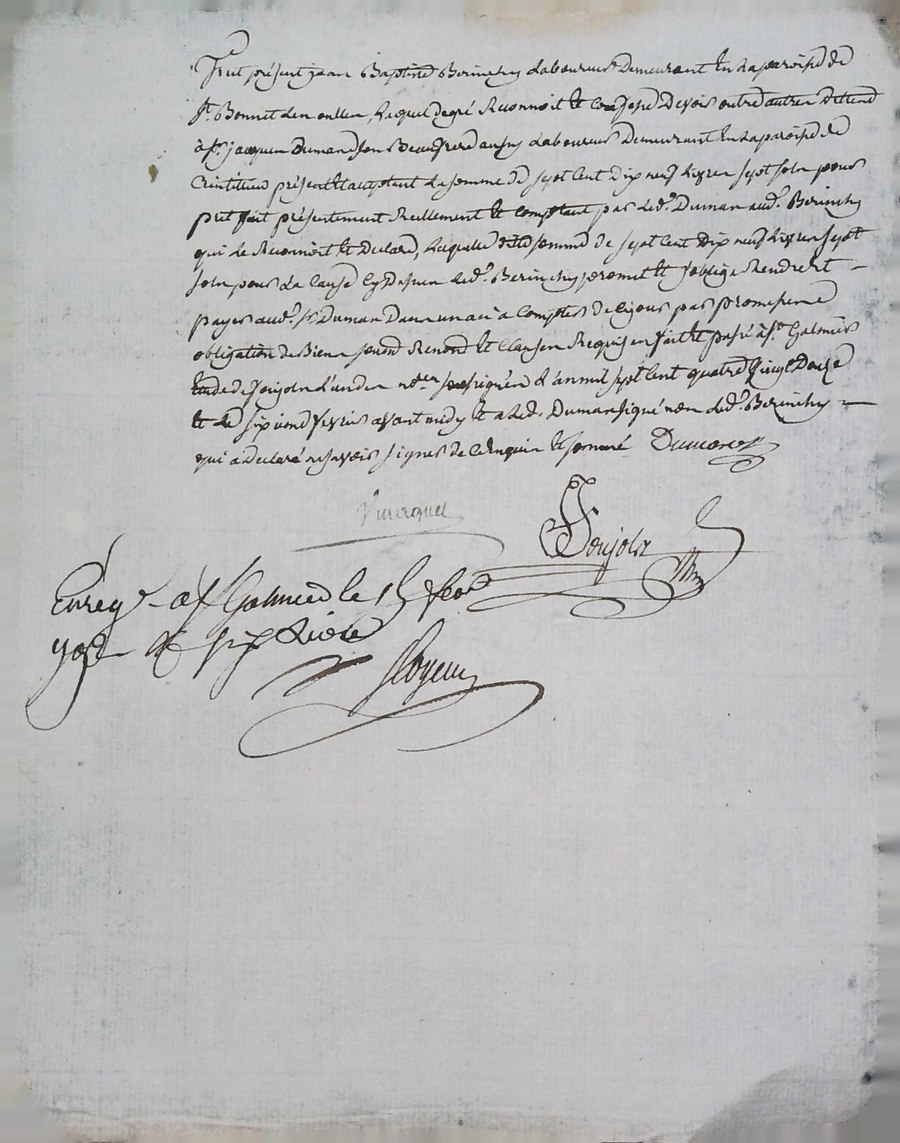 Fut présent jean Baptiste Berinchy Laboureur Demeurant En La paroisse de
St. Bonnet Lenoullen, Lequel degré Reconnoit Et Confesse Devoir outre autres Dettend
à Sr. jacques Dumand son Beaufrere aussy Laboureur Demeurant En La paroisse de
présent Et acceptant La somme de sept Cent dix neuf Livres sept sols pour
pret fait présentement Réellement Et Comptant par Led. Dumas aud. Berinchy
qui Le Reconnoit Et Declare, Laquelle ditte somme de sept Cent dix neuf Livres sept
sols pour La Cause Cy Dessus Led. Berinchy promet Et s'oblige Rendre Et
payer aud. Sr. Dumas Dans un an à Compter de Cejour par promesse
obligation de Biens soumd Renond Et Clauses Requises fait Et passé à St. Galmier
Etude de Soujolx L'un des nores soussignés L'an mil sept Cent quatre Vingt Douze
Et Le six février avant midy Et a Led. Dumas signé non Led. Berinchy
qui a Declaré ne savoir signer de Ce Enquis Et sommé Dumas
Soujolx
Enreg. à St Galmier le 15 fev.
1792 six livres